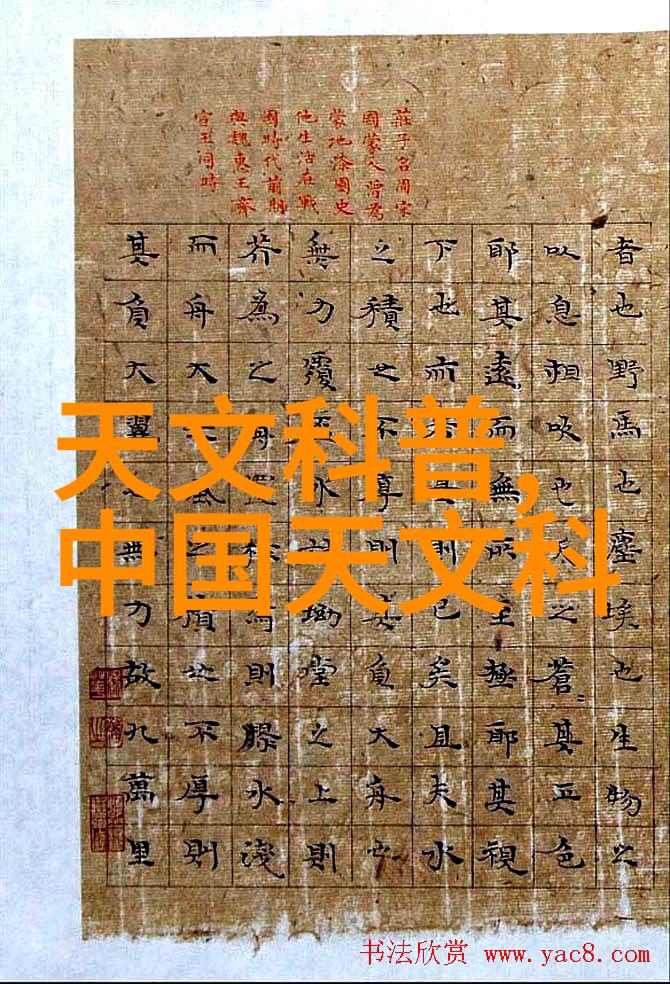 天文科普,
中国天文科
莊子名周宋
國蒙人曾為
蒙地漆園史
他生活在戰
國時代前期
與魏惠王齊
宣王同時
者也野馬也塵埃也生物之
以息相吹也天之蒼=其正色
耶其遠而無所至極耶其視
下也而若是則已矣且夫水
之積也不厚則其負大舟也
無力覆杯水於坳堂之上則
芥為之舟置杯焉則膠水淺
而舟大也風之積也不厚則
其負大翼也無力故九萬里
书法欣赏 www.yac8.com